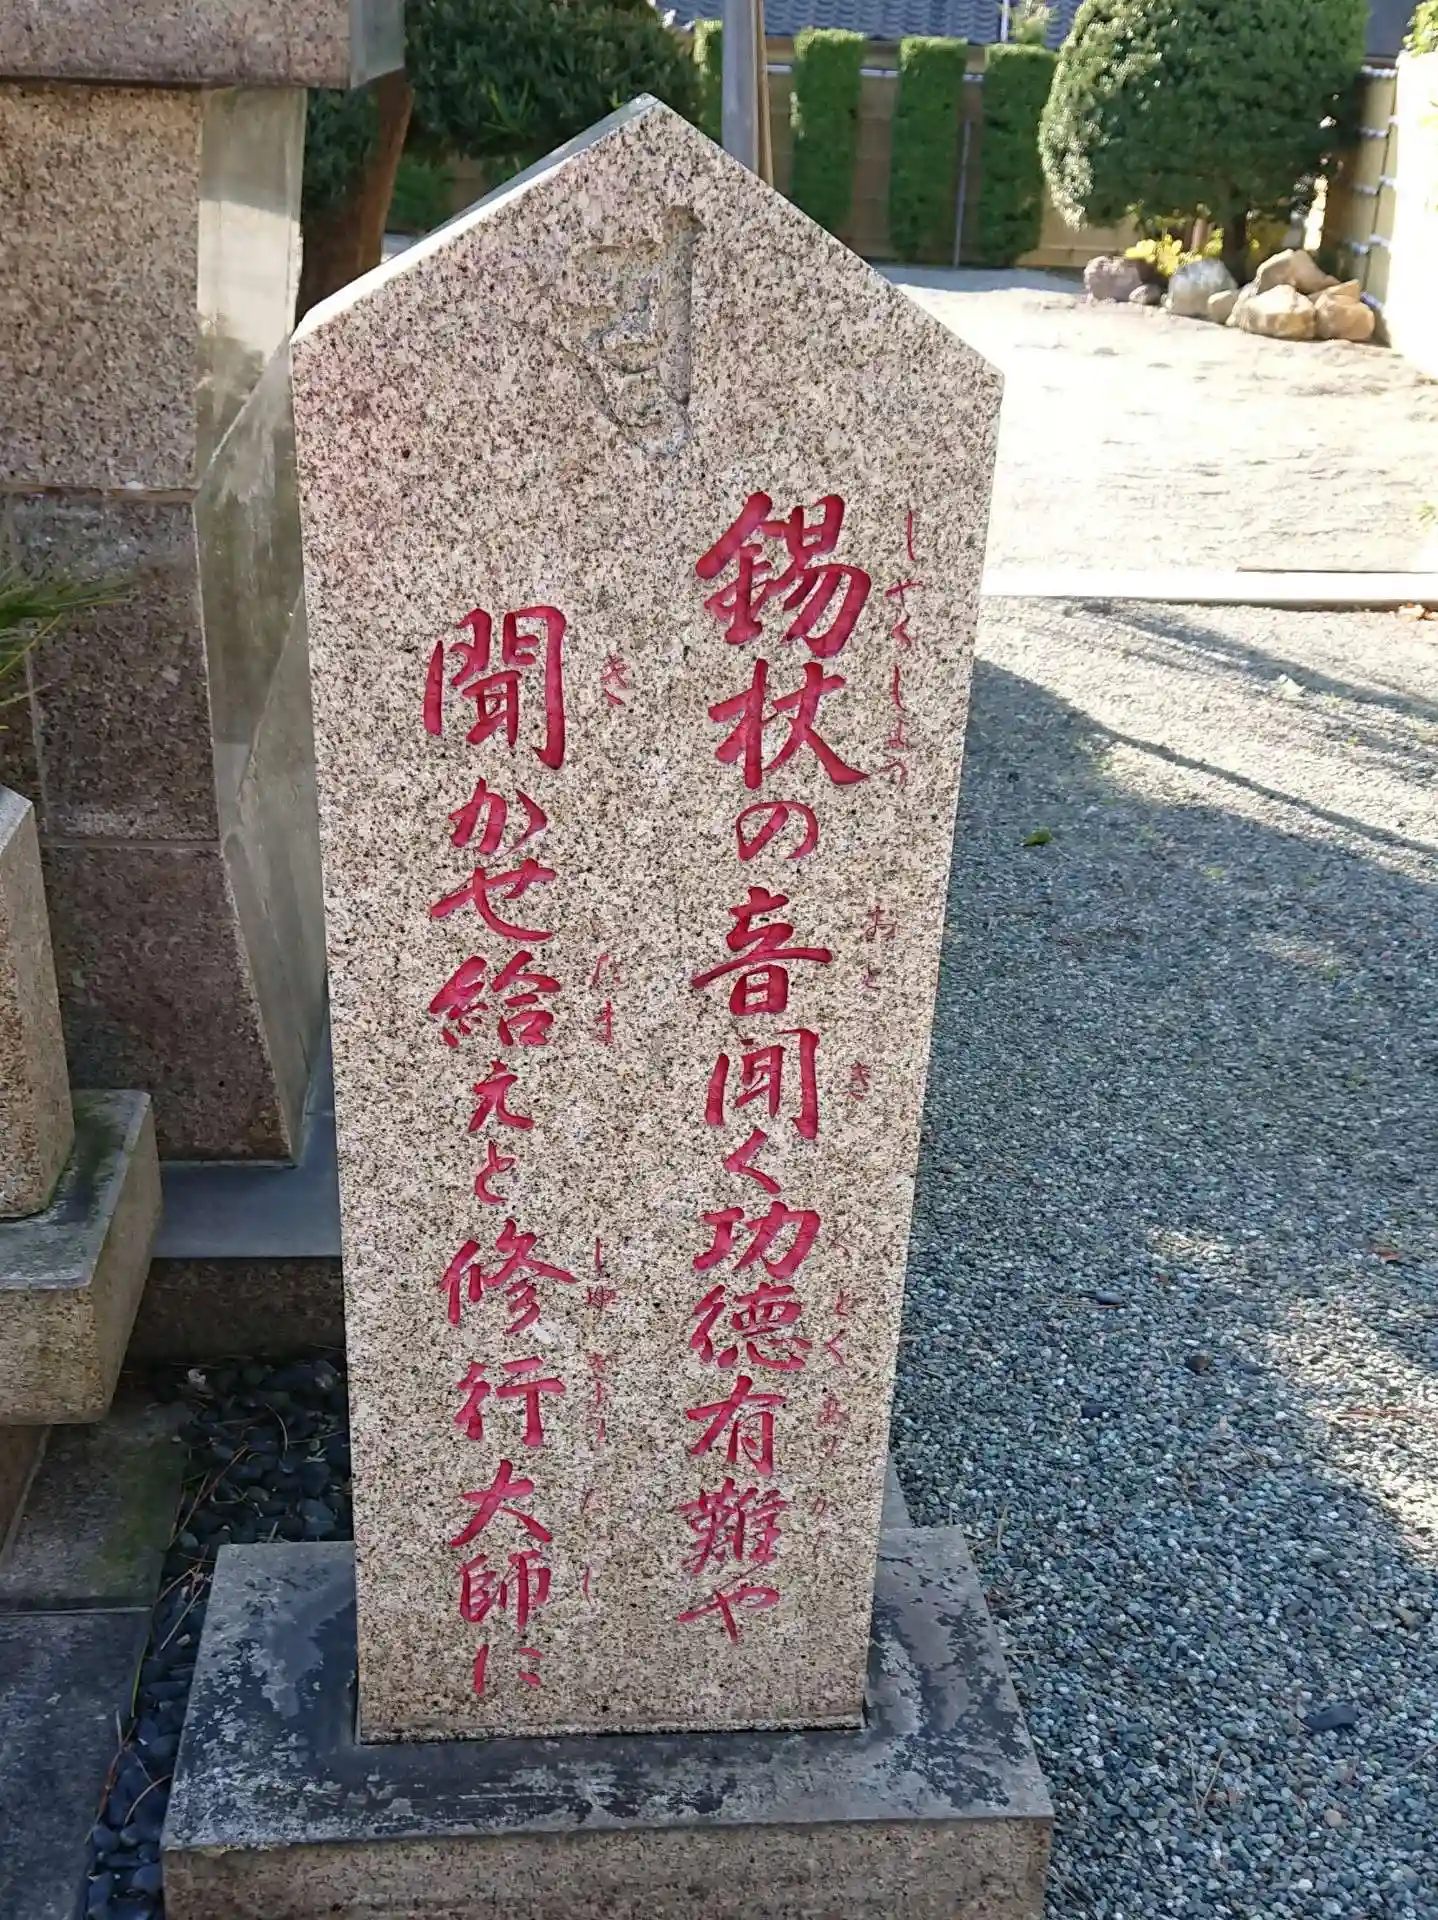 錫杖の音聞く功徳有難や
しゃくじょうの おと き くどくありがた
聞かせ給えと修行大師に
き たま しゅぎょうだいし